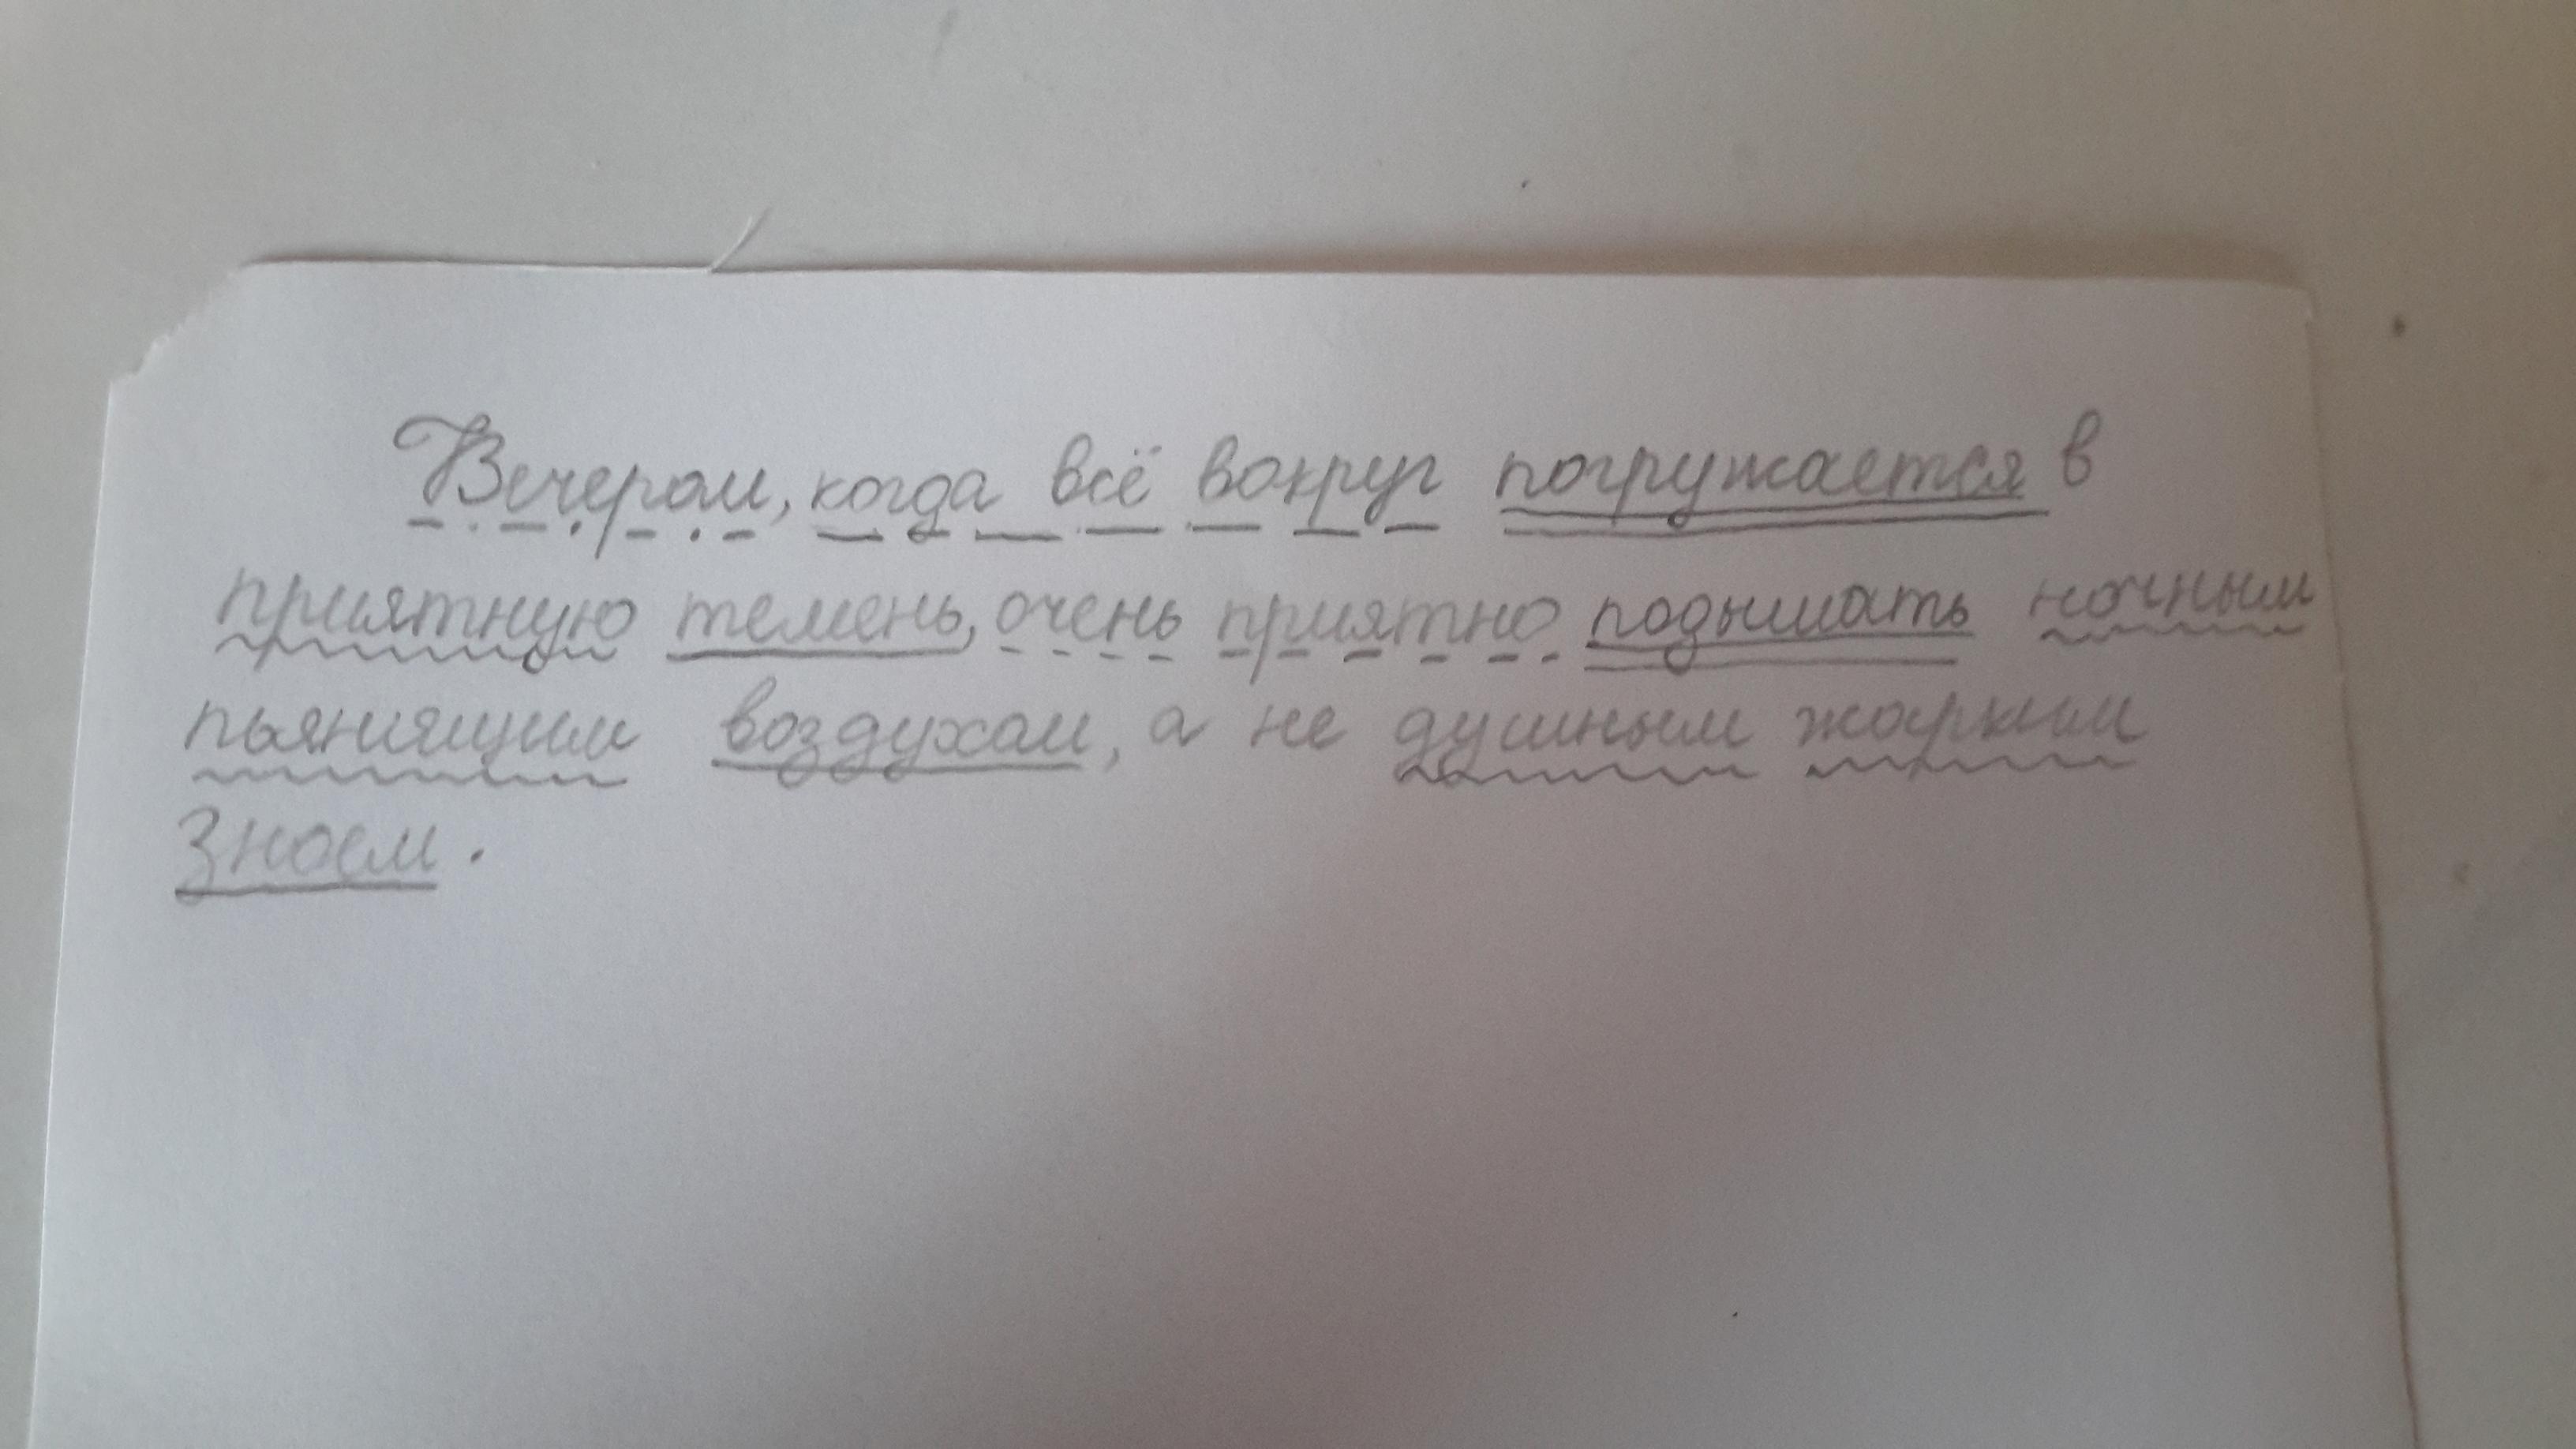 Вечером, когда всё вокруг погружается в
приятную темень, очень приятно подышать ночным
пьянящим воздухом, а не душным жарким
зноем.